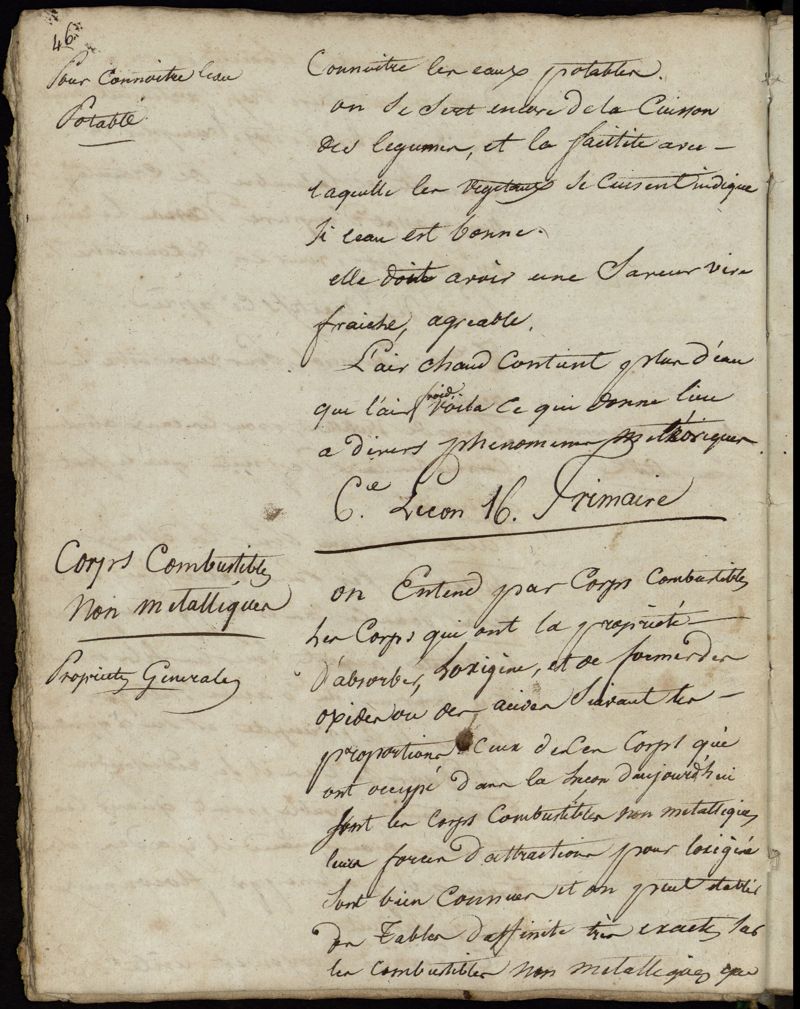 46
Pour Connoitre leau
Potable
Connoitre les eaux potables.
on se sert encore de la Cuisson
des legumes, et la facilite avec
laquelle les vegetaux se Cuisent indique
si leau est bonne.
elle doit avoir une Saveur vive
fraiche, agreable.
L'air chaud Contient plus d'eau
que l'air froid voila ce qui donne lieu
a divers phenomenes metéoriques
C.ie Lecon 16. Primaire
Corps Combustibles
Non metalliques
Proprietes Generales
on Entend par Corps Combustibles
Les Corps qui ont la proprieté
D'absorber, Loxigine, et de former des
oxides ou des acides Suivant les
proportions. Ceux de Les Corps qui
ont occupé dans la Lecon d'aujourd'hui
sont les Corps Combustibles non metalliques
leurs forces D'attractions pour loxigine
sont bien Connues et on peut etablir
des Tables d'affinite très exactes sur
les Combustibles non metalliques que